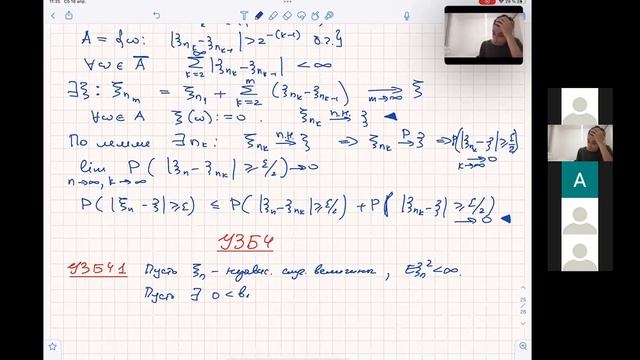 11:35 Сб 16 апр.
A = {ω: |ξ_{n_k} - ξ_{n_{k-1}}| > 2^{-(k-1)} б.ч.}
∀ω ∈ Ā ∑_{k=2}^{∞} |ξ_{n_k} - ξ_{n_{k-1}}| < ∞
∃ξ: ξ_{n_m} = ξ_{n_1} + ∑_{k=2}^{m} (ξ_{n_k} - ξ_{n_{k-1}}) →_{m→∞} ξ
∀ω ∈ A ξ(ω) := 0. ξ_{n_k} →^{п.н.} ξ ◄
По лемме ∃ n_k: ξ_{n_k} →^{п.н.} ξ ⇒ ξ_{n_k} →^{P} ξ ⇒ P(|ξ_{n_k} - ξ| ≥ ε/2) →_{k→∞} 0
lim_{n→∞, k→∞} P(|ξ_n - ξ_{n_k}| ≥ ε/2) → 0
P(|ξ_n - ξ| ≥ ε) ≤ P(|ξ_n - ξ_{n_k}| ≥ ε/2) + P(|ξ_{n_k} - ξ| ≥ ε/2) → 0 ◄
УЗБЧ
УЗБЧ 1 Пусть ξ_n - независ. случ. величины, Eξ_n^2 < ∞.
Пусть ∃ 0 < b_1
A